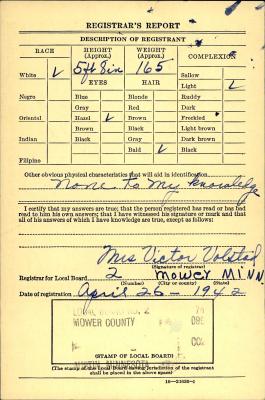 REGISTRAR'S REPORT
DESCRIPTION OF REGISTRANT
RACE HEIGHT (Approx.) WEIGHT (Approx.) COMPLEXION
White ✓ 5 ft 8 in 165 Sallow
EYES HAIR Light ✓
Negro Blue Blonde Ruddy
Gray Red Dark
Oriental Hazel ✓ Brown Freckled
Brown Black Light brown
Indian Black Gray Dark brown
Bald ✓ Black
Filipino
Other obvious physical characteristics that will aid in identification
None To My Knowledge
I certify that my answers are true; that the person registered has read or has had
read to him his own answers; that I have witnessed his signature or mark and that
all of his answers of which I have knowledge are true, except as follows:
Mrs Victor Volstad
(Signature of registrar)
Registrar for Local Board 2 Mower MINN.
(Number) (City or county)
Date of registration April 26 - 1942
LOCAL BOARD NO. 2
MOWER COUNTY
AUSTIN, MINNESOTA
(STAMP OF LOCAL BOARD)
(The stamp of the Local Board having jurisdiction of the registrant
shall be placed in the above space)